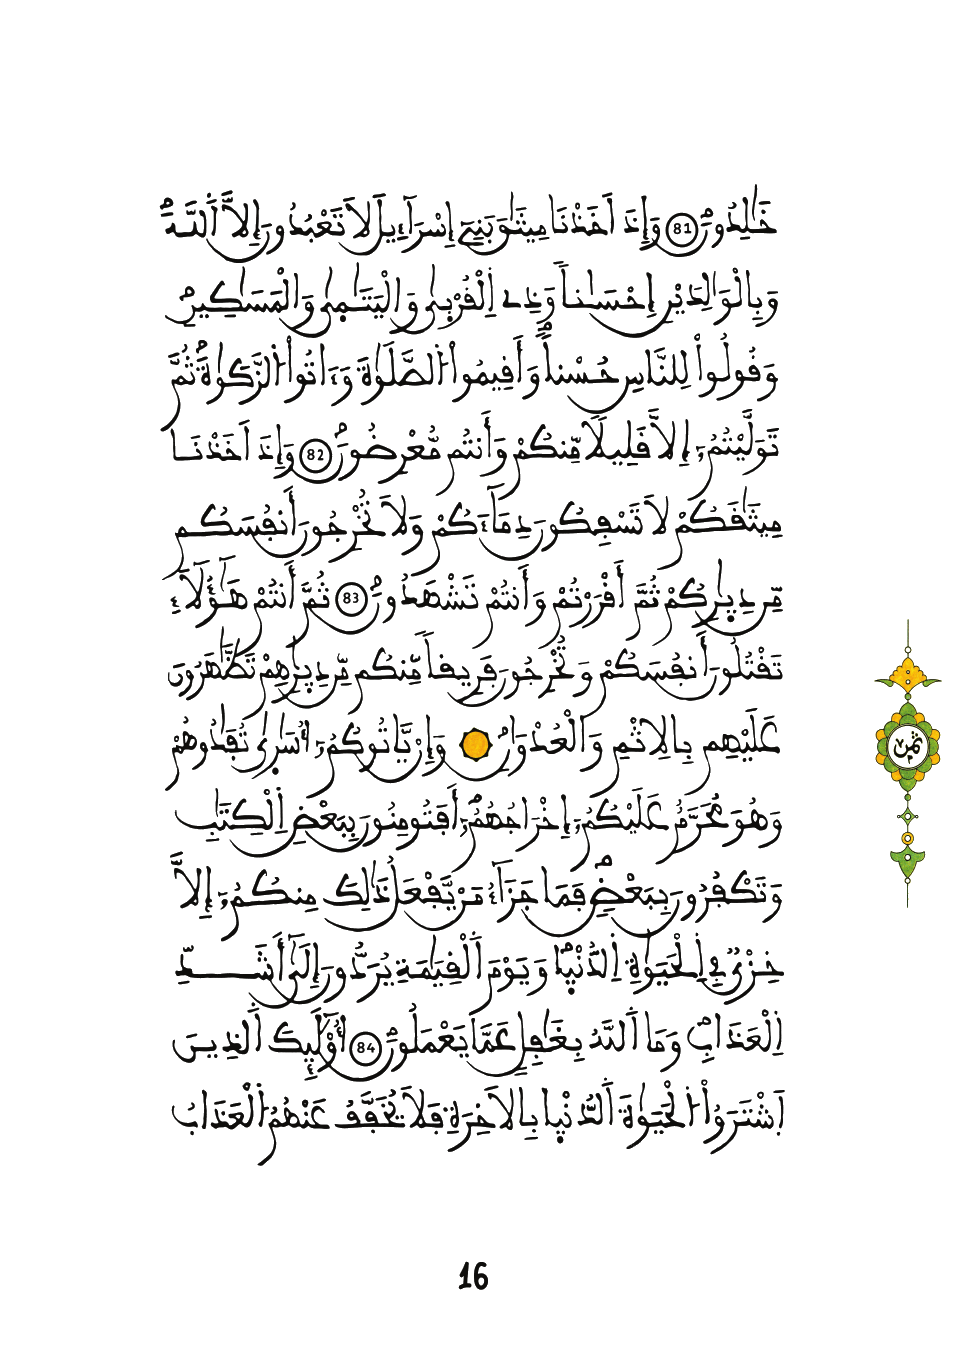 خَٰلِدُونَۖ 81 وَإِذَ اَخَذْنَا مِيثَٰقَ بَنِےٓ إِسْرَآءِيلَ لَا تَعْبُدُونَ إِلَّا اَ۬للَّهَۖ
وَبِالْوَٰلِدَيْنِ إِحْسَٰناٗ وَذِے اِ۬لْقُرْب۪يٰ وَالْيَتَٰم۪يٰ وَالْمَسَٰكِينِۖ
وَقُولُواْ لِلنَّاسِ حُسْناٗۖ وَأَقِيمُواْ اُ۬لصَّلَوٰةَ وَءَاتُواْ اُ۬لزَّكَوٰةَۖ ثُمَّ
تَوَلَّيْتُمُۥٓ إِلَّا قَلِيلاٗ مِّنكُمْ وَأَنتُم مُّعْرِضُونَۖ 82 وَإِذَ اَخَذْنَا
مِيثَٰقَكُمْ لَا تَسْفِكُونَ دِمَآءَكُمْ وَلَا تُخْرِجُونَ أَنفُسَكُم
مِّن دِيٰ۪رِكُمْ ثُمَّ أَقْرَرْتُمْ وَأَنتُمْ تَشْهَدُونَۖ 83 ثُمَّ أَنتُمْ هَٰٓؤُلَآءِ
تَقْتُلُونَ أَنفُسَكُمْ وَتُخْرِجُونَ فَرِيقاٗ مِّنكُم مِّن دِيٰ۪رِهِمْ تَظَّٰهَرُونَ
عَلَيْهِم بِالِاثْمِ وَالْعُدْوَٰنِۖ وَإِنْ يَّاتُوكُمُۥٓ أُسَٰر۪يٰ تُفَٰدُوهُمْ
وَهُوَ مُحَرَّمٌ عَلَيْكُمُۥٓ إِخْرَاجُهُمُۥٓۖ أَفَتُومِنُونَ بِبَعْضِ اِ۬لْكِتَٰبِ
وَتَكْفُرُونَ بِبَعْضٖۖ فَمَا جَزَآءُ مَنْ يَّفْعَلُ ذَٰلِكَ مِنكُمُۥٓ إِلَّا
خِزْيٞ فِے اِ۬لْحَيَوٰةِ اِ۬لدُّنْي۪اۖ وَيَوْمَ اَ۬لْقِيَٰمَةِ يُرَدُّونَ إِلَيٰٓ أَشَدِّ
اِ۬لْعَذَابِۖ وَمَا اَ۬للَّهُ بِغَٰفِلٍ عَمَّا يَعْمَلُونَۖ 84 أُوْلَٰٓئِكَ اَ۬لذِينَ
اَ۪شْتَرَوُاْ اُ۬لْحَيَوٰةَ اَ۬لدُّنْي۪ا بِالَاخِرَةِ فَلَا يُخَفَّفُ عَنْهُمُ اُ۬لْعَذَابُ
ثمن
16